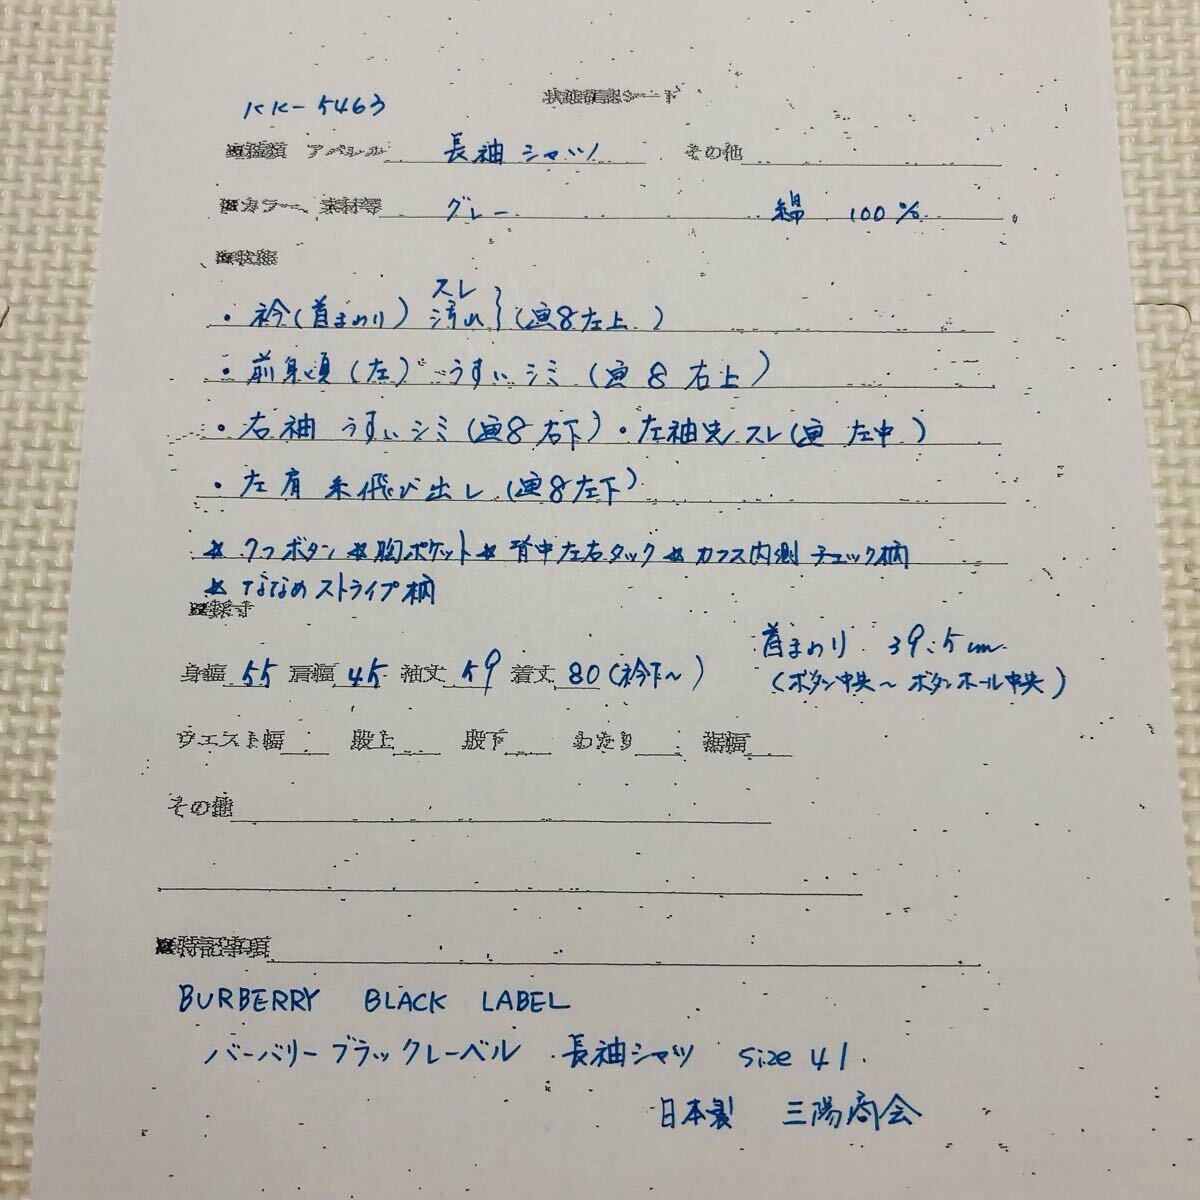 KK-5463
状態確認シート
■種類 アパレル 長袖シャツ その他
■カラー、素材等 グレー 綿 100%
■状態
・衿(首まわり) スレ 汚れ}(画8左上)
・前身頃(左) うすいシミ(画8右上)
・右袖 うすいシミ(画8右下)・左袖先スレ(画 左中)
・左肩 糸飛び出し(画8左下)
☆7つボタン☆胸ポケット☆背中左右タック☆カフス内側チェック柄
☆ななめストライプ柄
■採寸
首まわり 39.5cm
身幅 55 肩幅 45 袖丈 59 着丈 80(衿下〜)
(ボタン中央〜ボタンホール中央)
ウエスト幅 股上 股下 わたり 裾幅
その他
■特記事項
BURBERRY BLACK LABEL
バーバリーブラックレーベル 長袖シャツ size 41
日本製 三陽商会